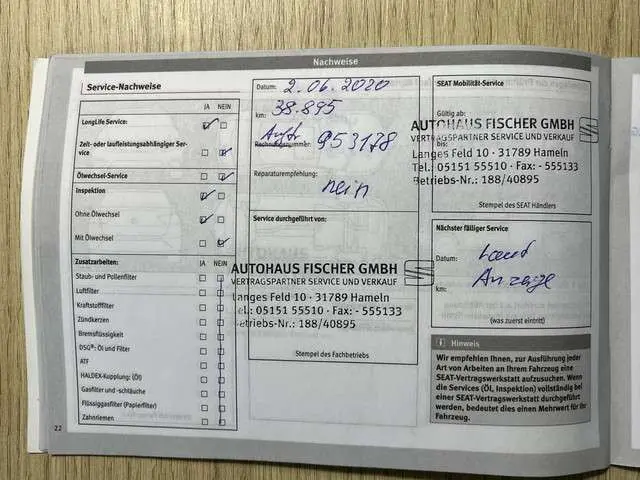 Nachweise
Service-Nachweise
JA NEIN
LongLife Service:
Zeit- oder laufleistungsabhängiger Ser-
vice
Ölwechsel-Service
Inspektion
JA NEIN
Ohne Ölwechsel
Mit Ölwechsel
Zusatzarbeiten:
JA NEIN
Staub- und Pollenfilter
Luftfilter
Kraftstofffilter
Zündkerzen
Bremsflüssigkeit
DSG®: Öl und Filter
ATF
HALDEX-Kupplung: (Öl)
Gasfilter und -schläuche
Flüssiggasfilter (Papierfilter)
Zahnriemen
22
Datum: 2.06.2020
km: 38.895
Auftr
Rechnungsnummer: 953178
Reparaturempfehlung:
nein
Service durchgeführt von:
AUTOHAUS FISCHER GMBH
VERTRAGSPARTNER SERVICE UND VERKAUF
Langes Feld 10 · 31789 Hameln
Tel.: 05151 55510 · Fax: - 555133
Betriebs-Nr.: 188/40895
Stempel des Fachbetriebs
SEAT Mobilität-Service
Gültig ab:
AUTOHAUS FISCHER GMBH
VERTRAGSPARTNER SERVICE UND VERKAUF
bis:
Langes Feld 10 · 31789 Hameln
Tel.: 05151 55510 · Fax: - 555133
Betriebs-Nr.: 188/40895
Stempel des SEAT Händlers
Nächster fälliger Service
Datum: laut
km: Anzeige
(was zuerst eintritt)
Hinweis
Wir empfehlen Ihnen, zur Ausführung jeder
Art von Arbeiten an Ihrem Fahrzeug eine
SEAT-Vertragswerkstatt aufzusuchen. Wenn
die Services (Öl, Inspektion) vollständig bei
einer SEAT-Vertragswerkstatt durchgeführt
werden, bedeutet dies einen Mehrwert für Ihr
Fahrzeug.